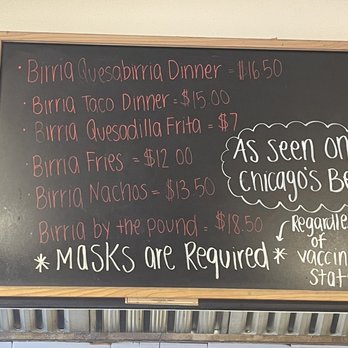 · Birria Quesabirria Dinner = $16.50
· Birria Taco Dinner = $15.00
· Birria Quesadilla Frita = $7
· Birria Fries = $12.00
· Birria Nachos = $13.50
· Birria by the pound = $18.50
* MASKS are Required *
As seen on
Chicago's Be
Regardle
of
vaccin
Stat